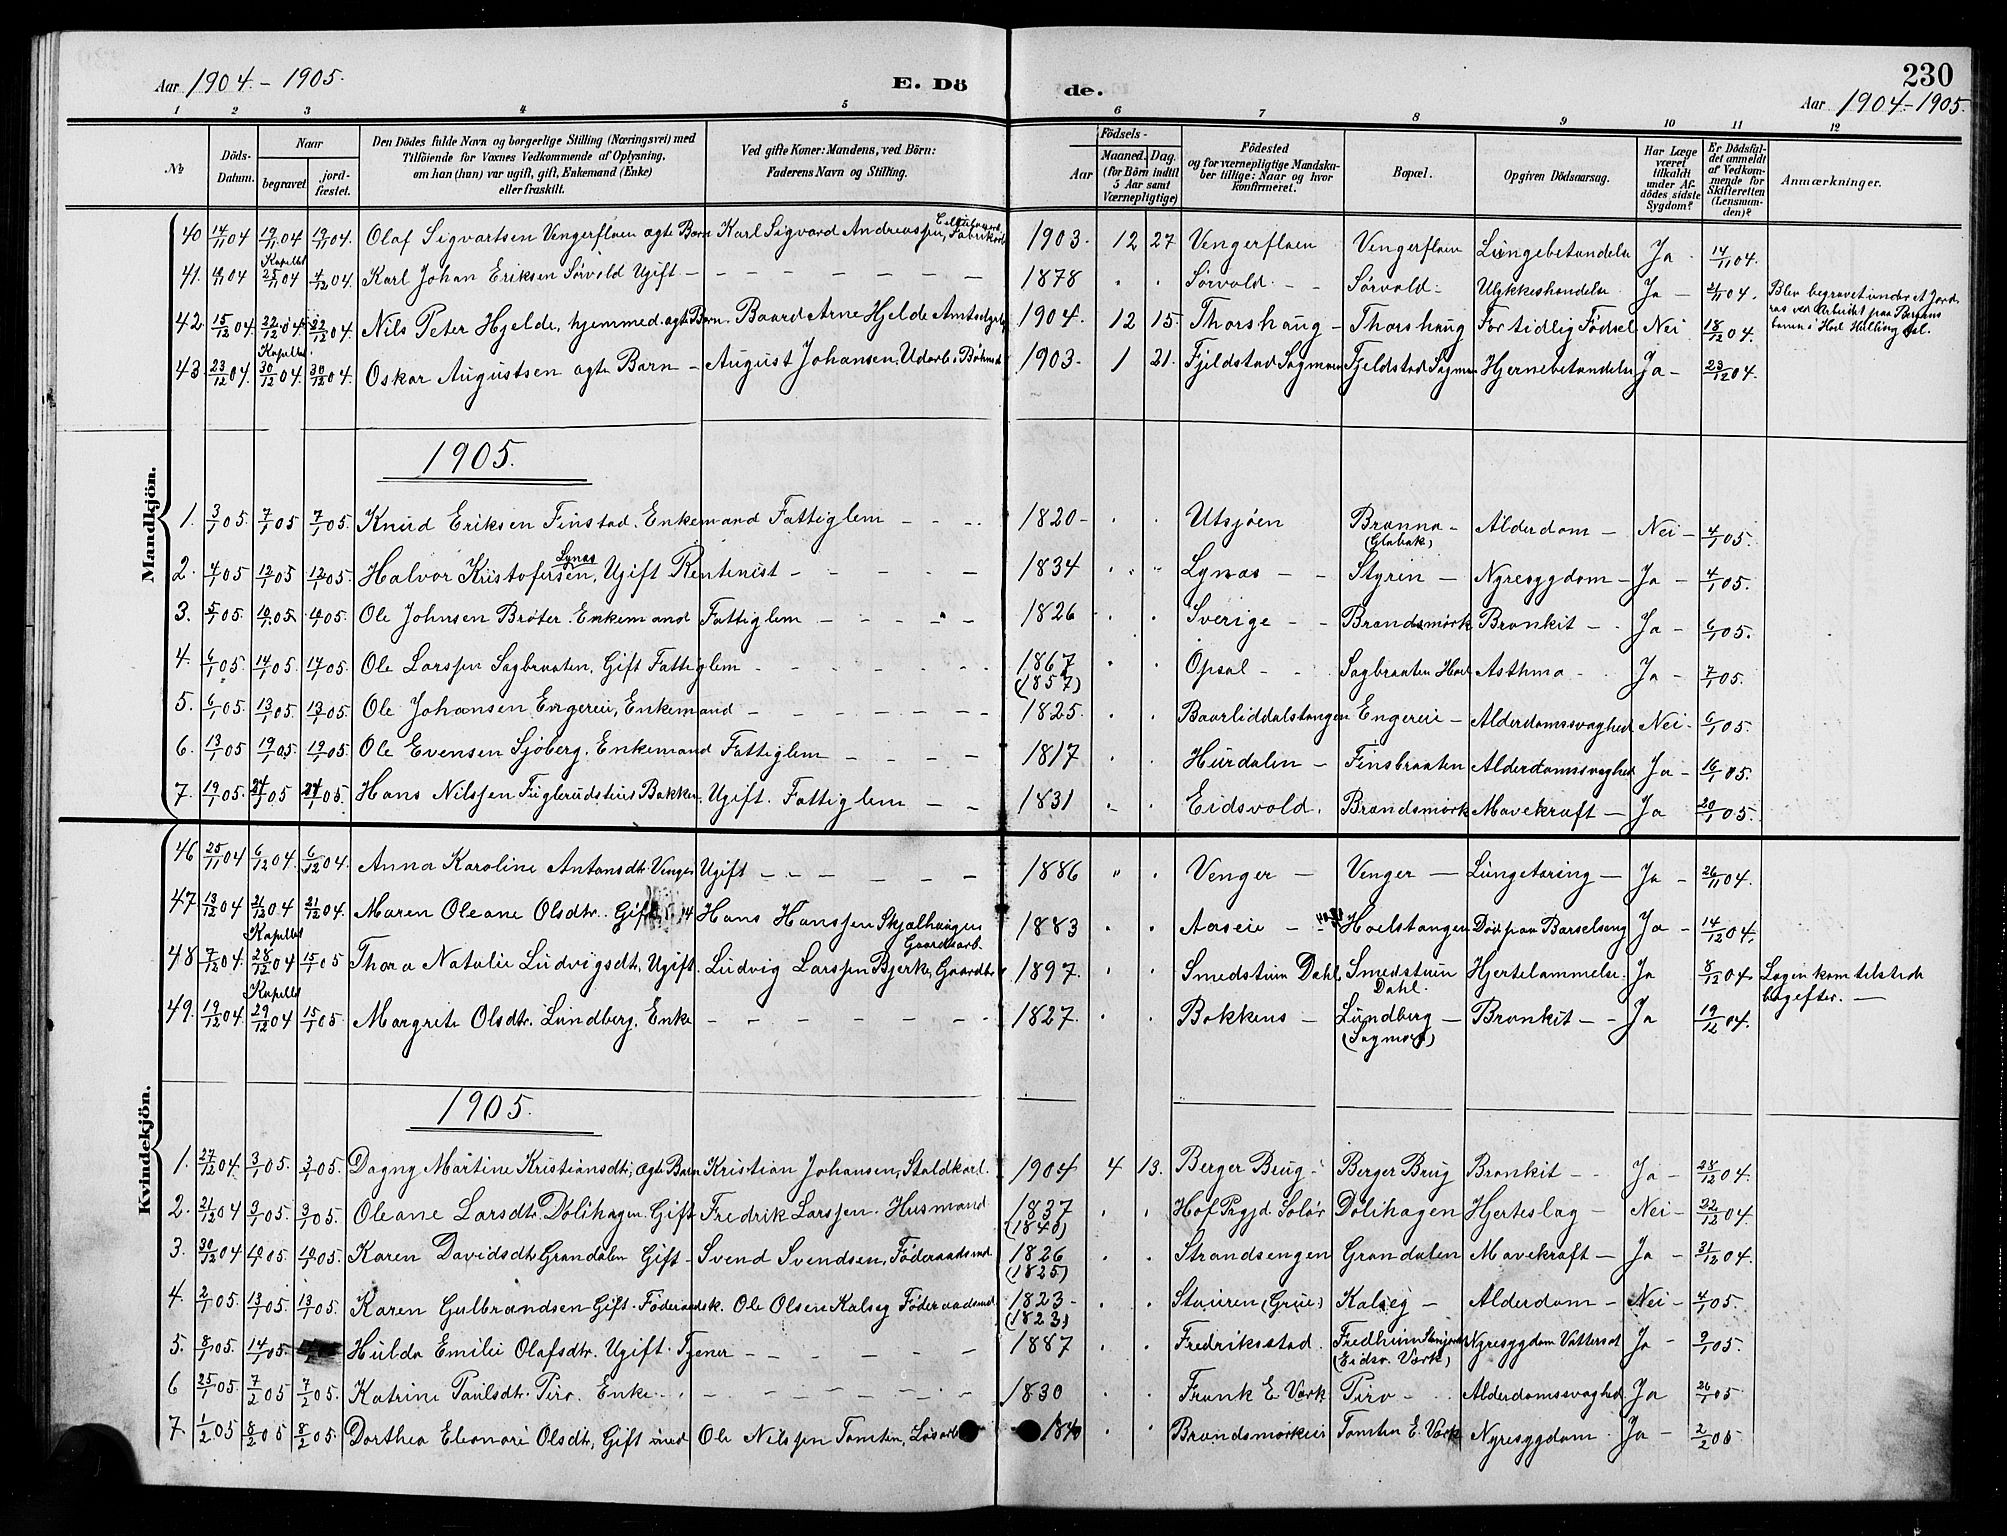 230
Aar 1904 - 1905.
E. Dö
de.
Aar 1904-1905.
1 2 3 4 5 6 7 8 9 10 11 12
№
Döds-
Datum.
Naar
begravet
jord-
fæstet.
Den Dödes fulde Navn og borgerlige Stilling (Næringsvei) med
Tilföiende for Voxnes Vedkommende af Oplysning,
om han (hun) var ugift, gift, Enkemand (Enke)
eller fraskilt.
Ved gifte Koner: Mandens, ved Börn:
Faderens Navn og Stilling.
Födsels-
Aar
Maaned. Dag.
(for Börn indtil
5 Aar samt
Værnepligtige)
Födested
og for værnepligtige Mandska-
ber tillige: Naar og hvor
konfirmeret.
Bopæl.
Opgiven Dödsaarsag.
Har Læge
været
tilkaldt
under Af-
dödes sidste
Sygdom?
Er Dödsfal-
det anmeldt
af Vedkom-
mende for
Skifteretten
(Lensman-
den)?
Anmærkninger.
Mandkjön.
40 14/11 04 19/11 04 19/11 04. Olaf Sigvartsen Vengerfloen ægte Barn Karl Sigvard Andreassen, 1903. 12 27 Vengerfloen Vengerfloen Lungebetændelse Ja 14/11 04.
Kapellet
41. 04 25/11 04 4/12 04. Karl Johan Eriksen Sørvold Ugift - 1878 Sørvold. - Sørvold - Ulykkeshændelse Ja - 21/11 04. Blev begravet under et Jord-
ras ved Arbeidet paa Bergens
banen i Hol Hallingdal.
42 15/12 04 22/12 04 22/12 04. Nils Peter Hjelde, hjemmed. ægte Barn. Baard Arne Hjelde 1904. 12 15. Thorshaug - Thorshaug For tidlig Fødsel Nei 18/12 04.
Kapellet.
43 23/12 04. 30/12 04. 30/12 04. Oskar Augustsen ægte Barn - August Johansen, 1903. 1 21. Fjeldstad Sagmoen Fjeldstad Sagmoen Hjernebetændelse Ja - 23/12 04.
1905.
1. 3/1 05 7/1 05 7/1 05. Knud Eriksen Finstad. Enkemand Fattiglem - - - 1820 - Utsjøen Brønna - Alderdom - Nei - 4/1 05.
2. 4/1 05 12/1 05 12/1 05. Halvor Kristofersen Lynæs, Ugift Rentenist - 1834 Lynæs - - Styrin - Nyresygdom - Ja - 4/1 05.
3. 5/1 05. 05. 05. Ole Johnsen Brøter. Enkemand Fattiglem - 1826 Sverige - - Brandsmørk Bronkit - Ja - 6/1 05.
4. 6/1 05. 14/1 05. 14/1 05. Ole Larssen Sagbraaten, Gift Fattiglem - 1867 Opsal - - Sagbraaten Asthma - Ja - 7/1 05.
(1857)
5. 6/1 05. 13/1 05. 13/1 05. Ole Johansen Engereie, Enkemand - 1825. Baarliddalstangen Engereie - Alderdomssvaghed Nei - 6/1 05.
6. 13/1 05 19/1 05. 19/1 05. Ole Evensen Sjøberg. Enkemand Fattiglem - 1817 Hurdalen - Finsbraaten Alderdomssvaghed Ja - 16/1 05.
7. 19/1 05. 24/1 05 24/1 05. Hans Nilssen Bakken. Ugift. Fattiglem - - 1831 Eidsvold. Brandsmørk Mavekræft - Ja 20/1 05.
Kvindekjön.
46 25/11 04 6/12 04. 6/12 04. Anna Karoline Antonsdt. Venger Ugift - - - 1886 Venger - Venger - Lungetæring - Ja - 26/11 04.
47 13/12 04 21/12 04 21/12 04. Maren Oleane Olsdtr. Gift Hans Hanssen Skjalhaugen 1883 Aaseie - Hoelstangen Død paa Barselseng Ja - 14/12 04.
Kapellet
Gaardsarb.
48 7/12 04. 28/12 04 15/1 05 Thora Natalie Ludvigsdt. Ugift. Ludvig Larssen Bjerke, 1897. Smedstuen Dahl Smedstuen Hjertelammelse. Ja 8/12 04. Lægen kom tilstede
Dahl. bagefter. -
Kapellet
49. 19/12 04. 29/12 04 15/1 05. Margrete Olsdtr. Lundberg. Enke - 1827. Bakkens - Lundberg - Bronkit - - Ja 19/12 04.
(Sagmoen)
1905.
1. 27/12 04. 3/1 05. 3/1 05. Dagny Martine Kristiansdt. ægte Barn Kristian Johansen, Staldkarl. 1904 4 13. Berger Brug - Berger Brug Bronkit - - Ja - 28/12 04.
2. 21/12 04 3/1 05. 3/1 05. Oleane Larsdt. Dølihagen. Gift Fredrik Larssen. Husmand 1837 Hof Prgjd. Solør Dølihagen Hjerteslag - Nei - 22/12 04.
(1840)
3. 30/12 04 05. 05. Karen Davidsdt. Grandalen Gift - Svend Svendsen, Føderaadsmd. 1826 Strandsengen Grandalen Mavekræft - Ja - 31/12 04.
(1825)
4. 2/1 05. 13/1 05. 13/1 05. Karen Gulbrandsen Gift. Føderaadsk. Ole Olsen Kalseg Føderaadsmd. 1823 - Stuiren (Grue) Kalseg - Alderdom - Nei - 4/1 05.
(1823)
5. 8/1 05. 14/1 05. Hulda Emilie Olafsdtr. Ugift. Tjener - 1887 Fredriksstad. Fredheim Nyresygdom Vattersot Ja - 9/1 05.
(Eidsv. Værk)
6 25/1 05. 7/2 05 7/2 05. Katrine Paulsdtr. Piro. Enke - 1830 Frank E. Værk Piro - Alderdomssvaghed Ja 26/1 05
7. 1/2 05 8/2 05 8/2 05. Dorthea Eleonore Olsdtr, Gift med Ole Nilssen Tomten, 1840 Brandsmørkeie Tomten E. Værk Nyresygdom. Ja - 2/2 05